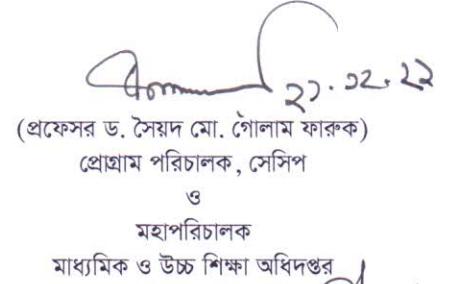 ২১.১২.২২
(প্রফেসর ড. সৈয়দ মো. গোলাম ফারুক)
প্রোগ্রাম পরিচালক, সেসিপ
ও
মহাপরিচালক
মাধ্যমিক ও উচ্চ শিক্ষা অধিদপ্তর